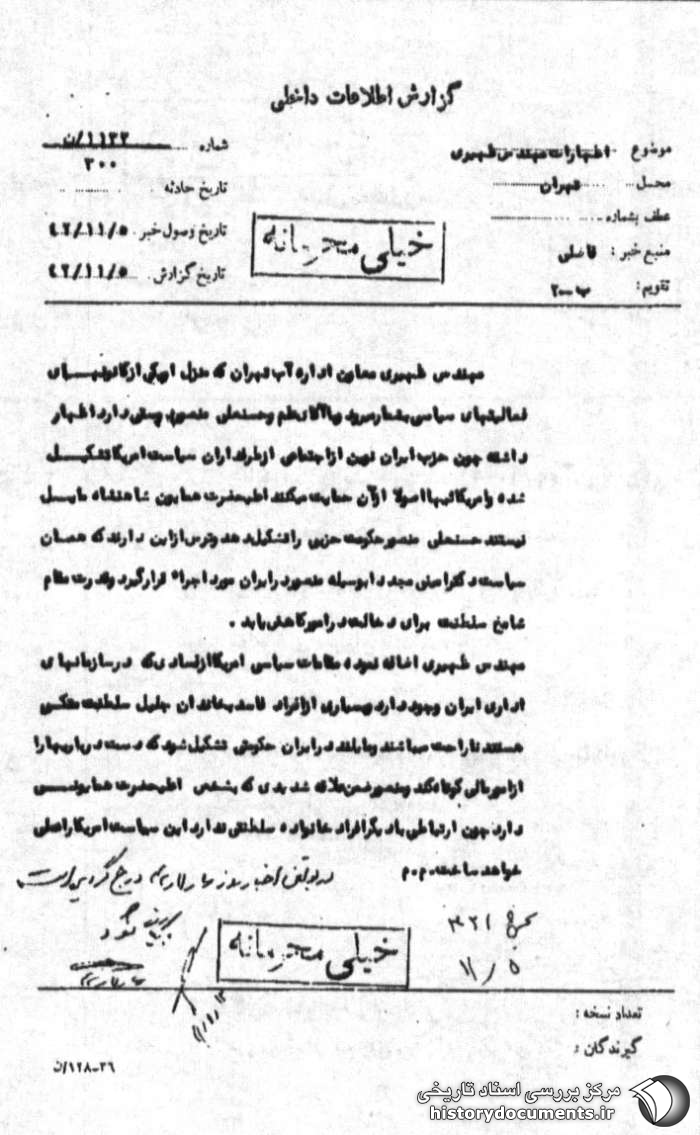 گزارش اطلاعات داخلی
موضوع اظهارات مهندس ظهیری
شماره ۱۱۲۲/ن
۳۰۰
محل تهران
تاریخ حادثه
عطف بشماره
تاریخ وصول خبر ۴۲/۱۱/۵
منبع خبر : فاضلی
تاریخ گزارش ۴۲/۱۱/۵
تقویم : ب-۲۰۰
خیلی محرمانه
مهندس ظهیری معاون اداره آب تهران که منزل او یکی از کانونهای
فعالیتهای سیاسی بشمار میرود و با آقای علم و حسنعلی منصور دوستی دارد اظهار
داشته چون حزب ایران نوین از اجتماعی از طرفداران سیاست امریکا تشکیل
شده و امریکائیها اصولا از آن حمایت میکنند اعلیحضرت همایون شاهنشاه مایل
نیستند حسنعلی منصور حکومت حزبی را تشکیل دهد و ترس از این دارند که همان
سیاست دکتر امینی مجددا بوسیله منصور در ایران مورد اجراء قرار گیرد و قدرت مقام
شامخ سلطنت برای دخالت در امور کاهش یابد .
مهندس ظهیری اضافه نموده مقامات سیاسی امریکا از فسادی که در سازمانهای
اداری ایران وجود دارد و بسیاری از افراد فاسد بخاندان جلیل سلطنت متکی
هستند ناراحت میباشند و مایلند در ایران حکومتی تشکیل شود که دست درباریها را
از امور مالی کوتاه کند و منصور ضمن علاقه شدیدی که بشخص اعلیحضرت همایونی
دارد چون ارتباطی با دیگر افراد خانواده سلطنتی ندارد این سیاست امریکا را عملی
خواهد ساخت. م.م
در بولتن اخبار روز درج گردیده است.
۳۲۱
۱۱/۵
خیلی محرمانه
تعداد نسخه :
گیرندگان :
۳۶-۱۲۸/ن
مرکز بررسی اسناد تاریخی
historydocuments.ir